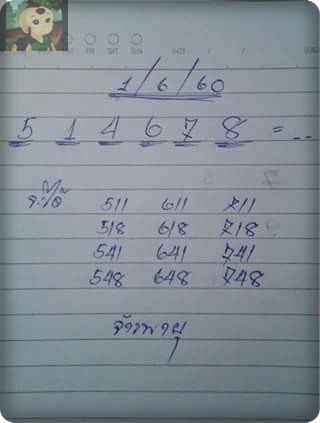 FRI SAT SUN DATE / /
1/6/60
5 1 4 6 7 8 = ..
511 611 711
518 618 718
541 641 741
548 648 748
จ้าวพายุ